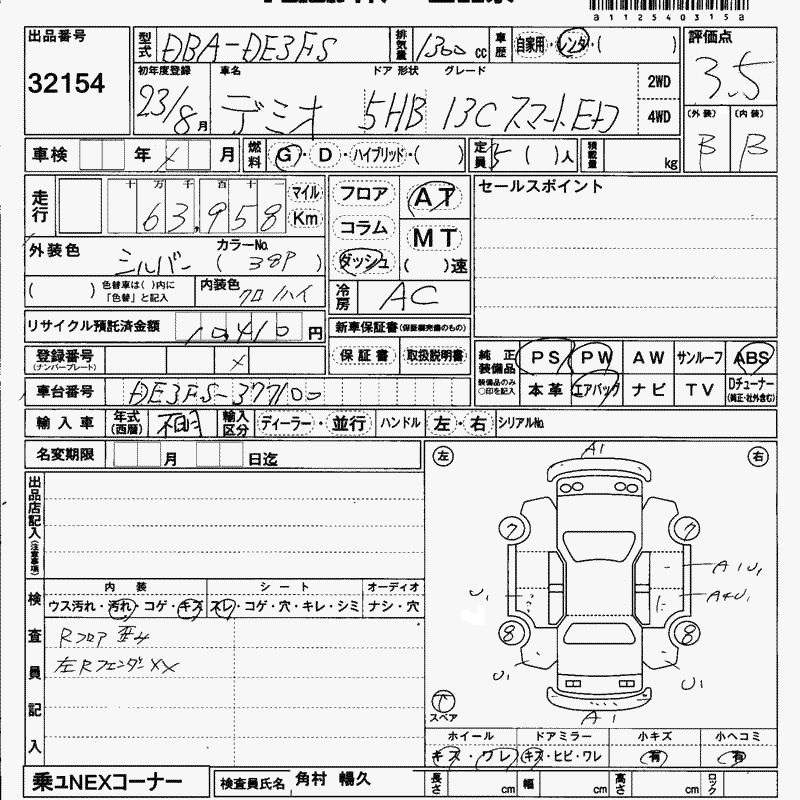 a112540315a
出品番号 型式 DBA-DE3FS 排気量 1300 cc 車歴 自家用・レンタ・( ) 評価点
32154 3.5
初年度登録 車名 ドア 形状 グレード
23/8月 デミオ 5HB 13C スマートEd 2WD 4WD
(外装) (内装)
B B
車検 年 月 燃料 G・D・ハイブリッド・( ) 定員 5( )人 積載量 kg
走行 十 万 千 百 十 一 マイル フロア AT セールスポイント
63,958 Km コラム MT
外装色 シルバー カラーNo. (38P) ダッシュ ( )速
( ) 色替車は( )内に「色替」と記入 内装色 クロ/ハイ 冷房 AC
リサイクル預託済金額 10,410 円 新車保証書(保証継完備のもの)
登録番号(ナンバープレート) 保証書 取扱説明書
純正装備品 PS PW AW サンルーフ ABS
装備品のみ○印を記入 本革 エアバッグ ナビ TV Dチューナー(純正・社外含む)
車台番号 DE3FS-377100
輸入車 年式(西暦) 不明 輸入区分 ディーラー・並行 ハンドル 左・右 シリアルNo.
名変期限 月 日迄
出品店記入(注意事項)
左 右
A1
7 7
A1U1
U1 A4U1
8 8
U1 U1
A1
下 スペア
検査員記入
内装 シート オーディオ
ウス汚れ・汚れ・コゲ・キズ スレ・コゲ・穴・キレ・シミ ナシ・穴
Rフロア歪み
左RフェンダーXX
ホイール ドアミラー 小キズ 小ヘコミ
キズ・ワレ キズ・ヒビ・ワレ 有 有
乗ユNEXコーナー 検査員氏名 角村 暢久 長さ cm 幅 cm 高さ cm ロック